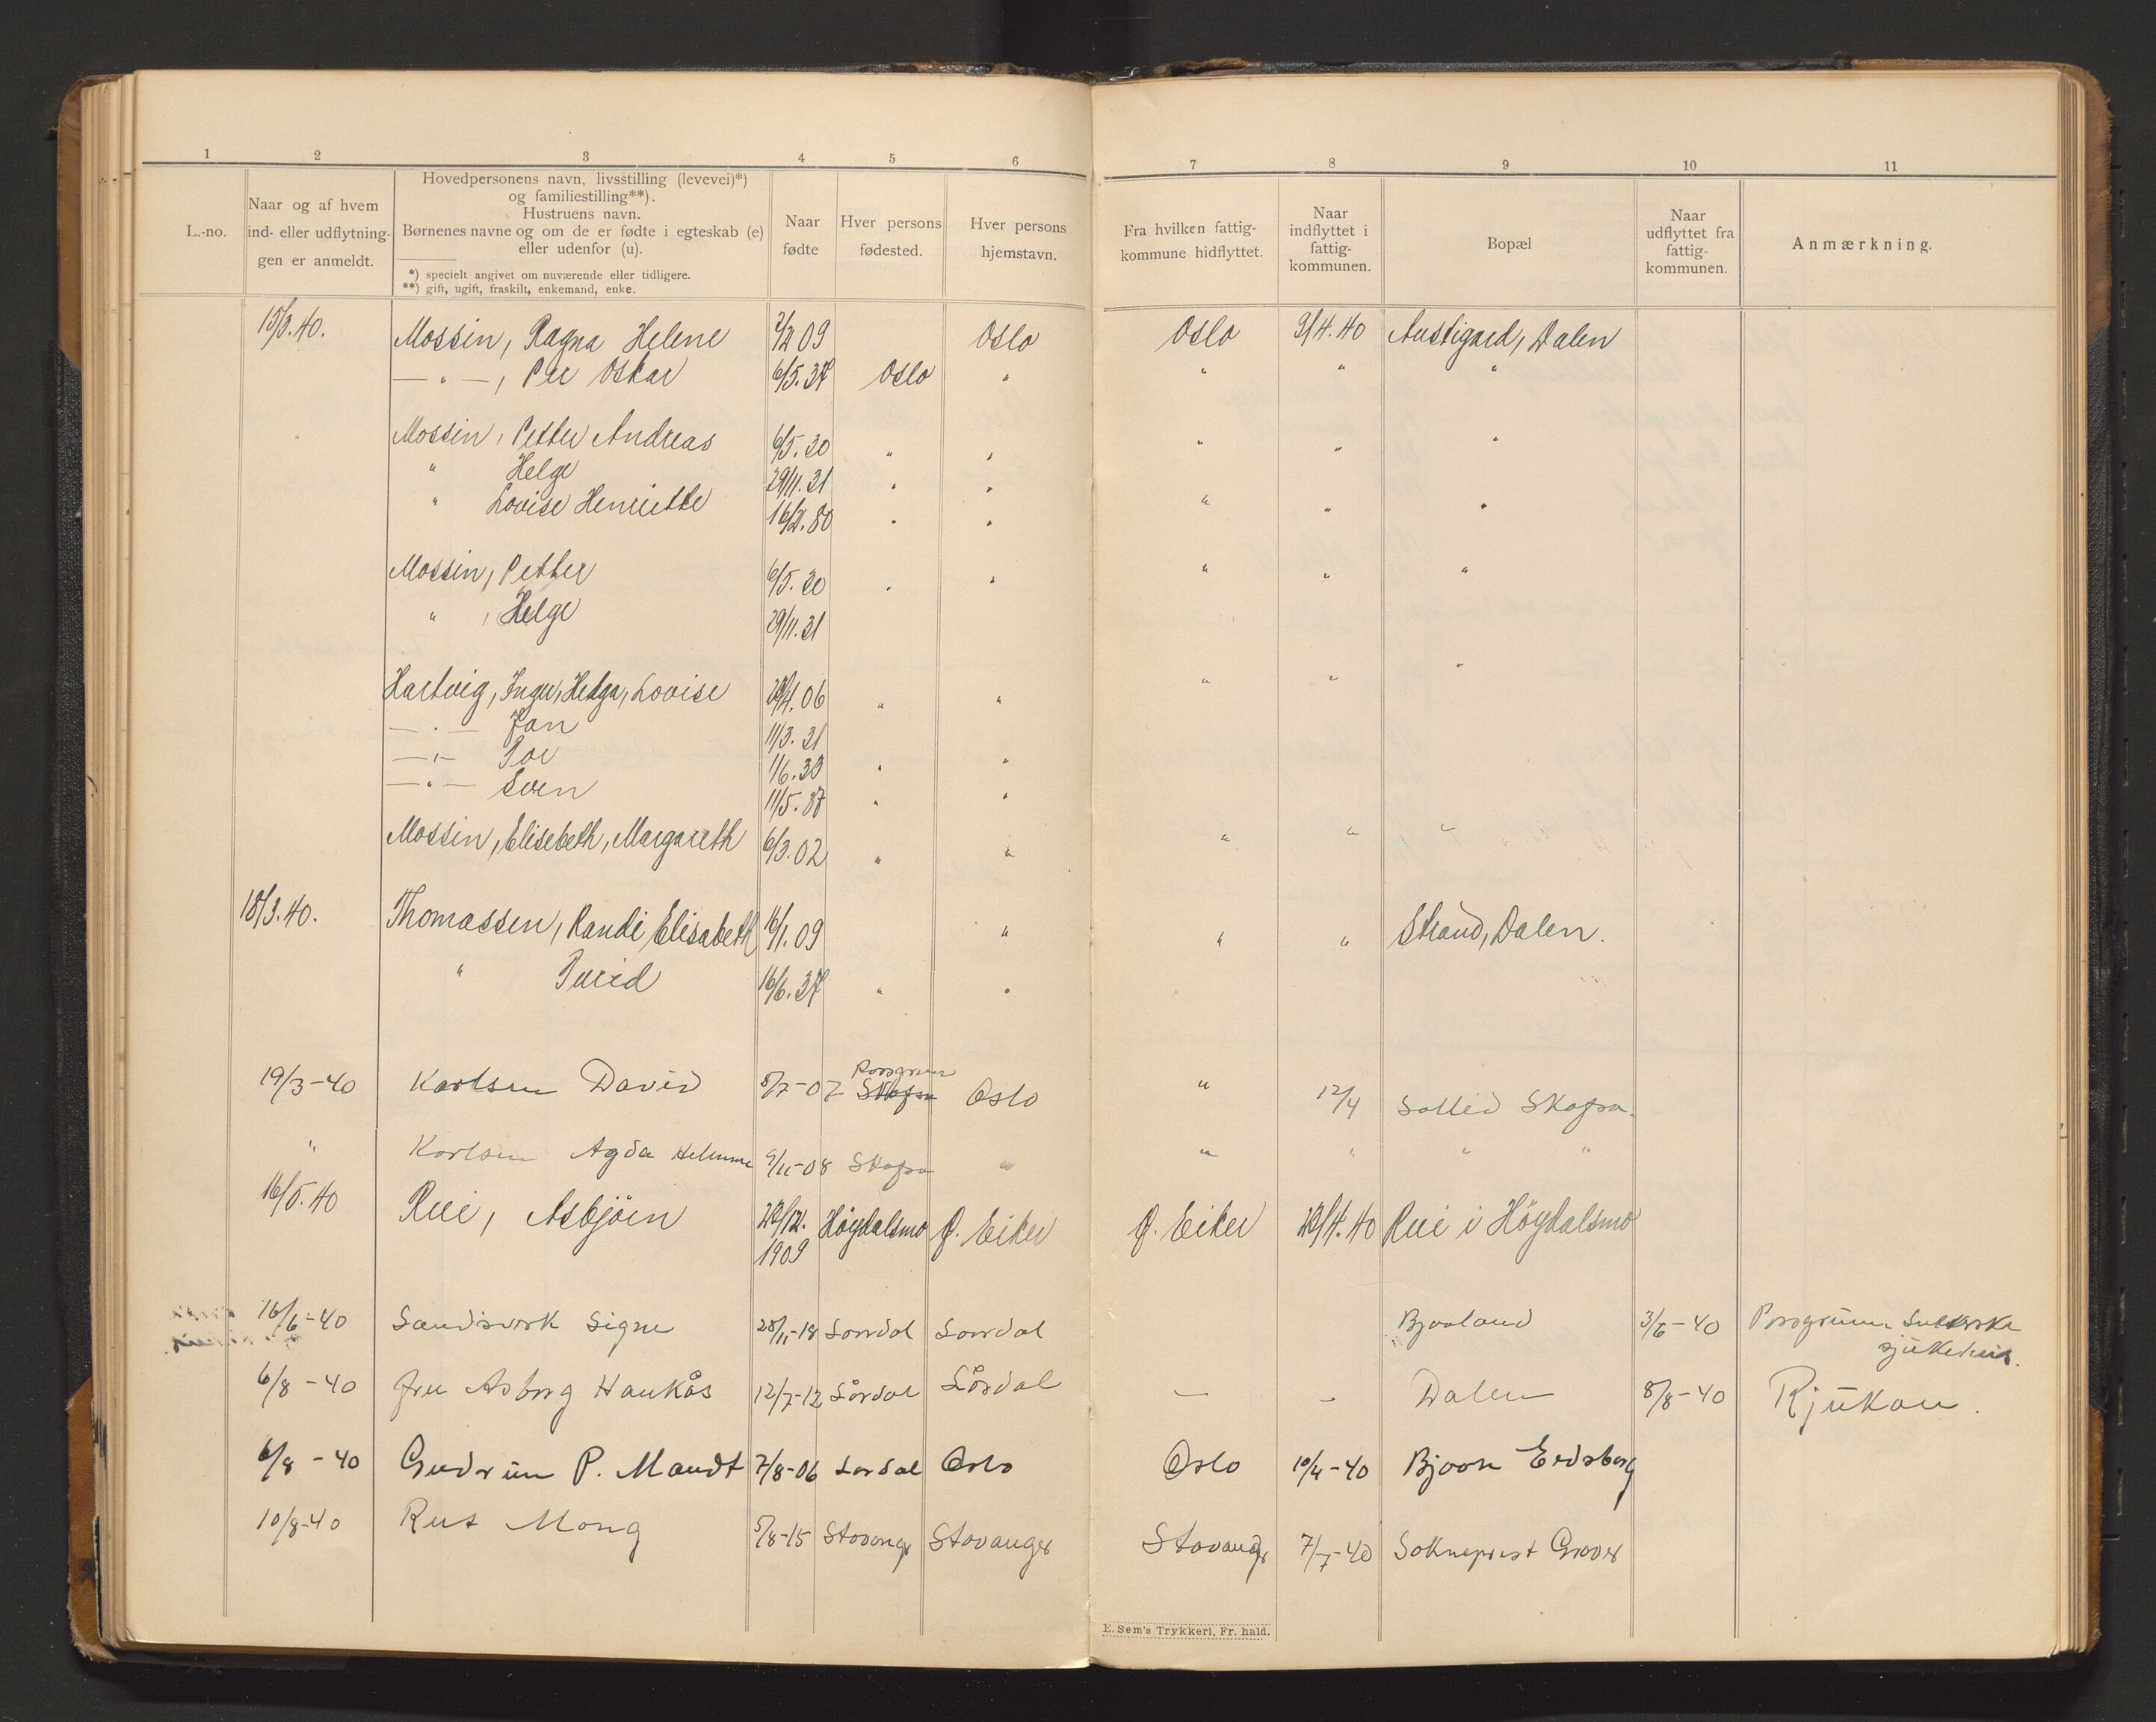 1 2 3 4 5 6 7 8 9 10 11
L.-no.
Naar og af hvem
ind- eller udflytnin-
gen er anmeldt.
Hovedpersonens navn, livsstilling (levevei)*)
og familiestilling**).
Hustruens navn.
Børnenes navne og om de er fødte i egteskab (e)
eller udenfor (u).
*) specielt angivet om nuværende eller tidligere.
**) gift, ugift, fraskilt, enkemand, enke.
Naar
fødte
Hver persons
fødested.
Hver persons
hjemstavn.
Fra hvilken fattig-
kommune hidflyttet.
Naar
indflyttet i
fattig-
kommunen.
Bopæl
Naar
udflyttet fra
fattig-
kommunen.
Anmærkning.
15/3.40. Mossin, Ragna Helene 7/2 09 Oslo Oslo 9/4.40 Austigard, Dalen
— " —, Per Oskar 6/5.37 Oslo " " " "
Mossin, Petter Andreas 6/5.30 " " " " "
" Helge 29/11.31 " "
" Lovise Henriette 16/2.80 " " " " "
Mossin, Petter 6/5.30 " " " " "
" , Helge 29/11.31
Hartvig, Inger, Helga, Lovise 06 " " " " "
— " — Jan 11/3.31
— " — Tor 1/6.33 " "
— " — Sven 11/5.37 " "
Mossin, Elisebeth, Margareth 6/3.02 " " " " "
18/3.40. Thomassen, Randi, Elisabeth 16/1.09 " " " Strand, Dalen.
" Turid 16/6.37 " "
19/3-40 Karlsen David 8/7-07 Porsgrunn Skafså Oslo " 12/4 Sollid Skafså.
" Karlsen Agda 9/11-08 Skafså " " " " "
16/5.40 Rui, Asbjörn 1909 Höydalsmo Ø. Eiker Ø. Eiker /4.40 Rui i Höydalsmo
16/6-40 Sandsverk Signe 28/11-18 Laurdal Laurdal Bjaaland 3/6-40 Porsgrunn
sjukehus.
6/8-40 fru Asborg Haukås 12/7-12 Lårdal Lårdal — — Dalen 8/8-40 Rjukan.
6/8-40 Gudrun P. Mandt 7/8-06 Lårdal Oslo Oslo 10/4-40 Bjåån Eidsborg
10/8-40 Rut Mong 5/8-15 Stavanger Stavanger Stavanger 7/7-40 Sokneprest Graver
E. Sem's Trykkeri, Fr. hald.